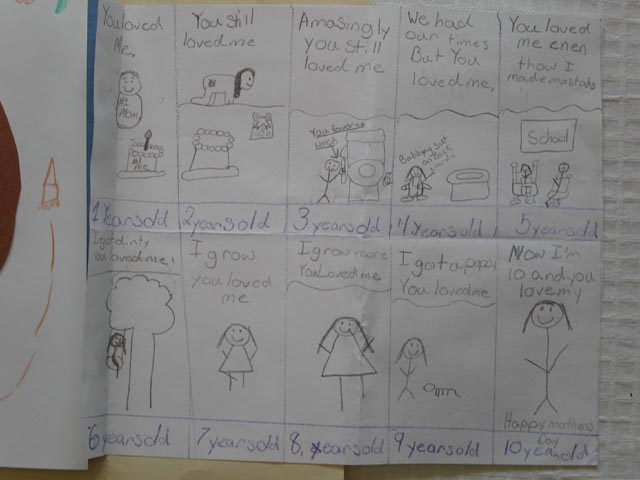 You loved
Me,
#1
Mom
1 Years old
You still
loved me
2 years old
Amasingly
you still
loved me
You favoret
3 years old
We had
our times
But You
loved me,
4 Years old
You loved
me even
thow I
School
5 years old
I got dirty
loved me!
6 years old
I grow
you loved
me
7 years old
I grow more
You Loved me
8, years old
I got a puppy
You loved me
9 years old
Now I'm
10 and you
love my
Happy mothers
Day
10 years old